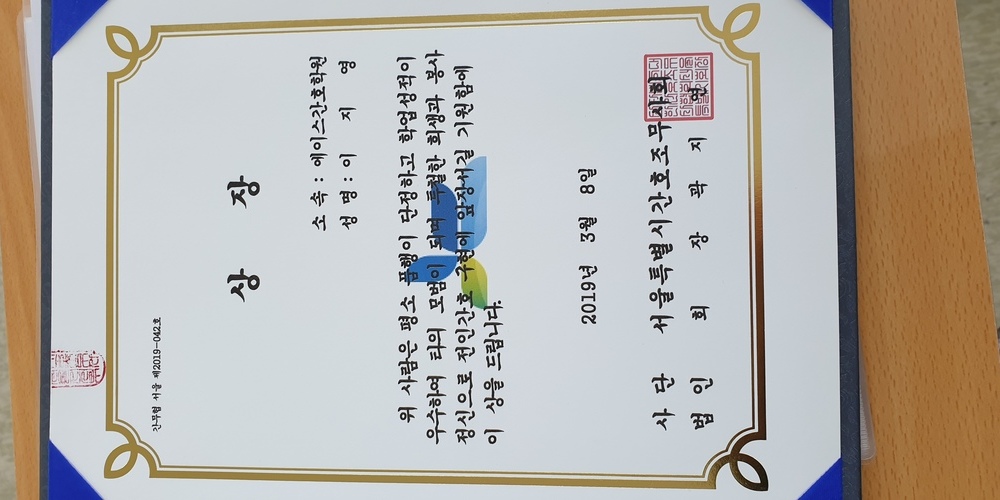 간무협 서울 제2019-042호
상 장
소 속 : 에이스간호학원
성 명 : 이 지 영
위 사람은 평소 품행이 단정하고 학업성적이
우수하여 타의 모범이 되며 투철한 희생과 봉사
정신으로 전인간호 구현에 앞장서길 기원함에
이 상을 드립니다.
2019년 3월 8일
사단 서울특별시간호조무사회
법인 회 장 곽 지 연